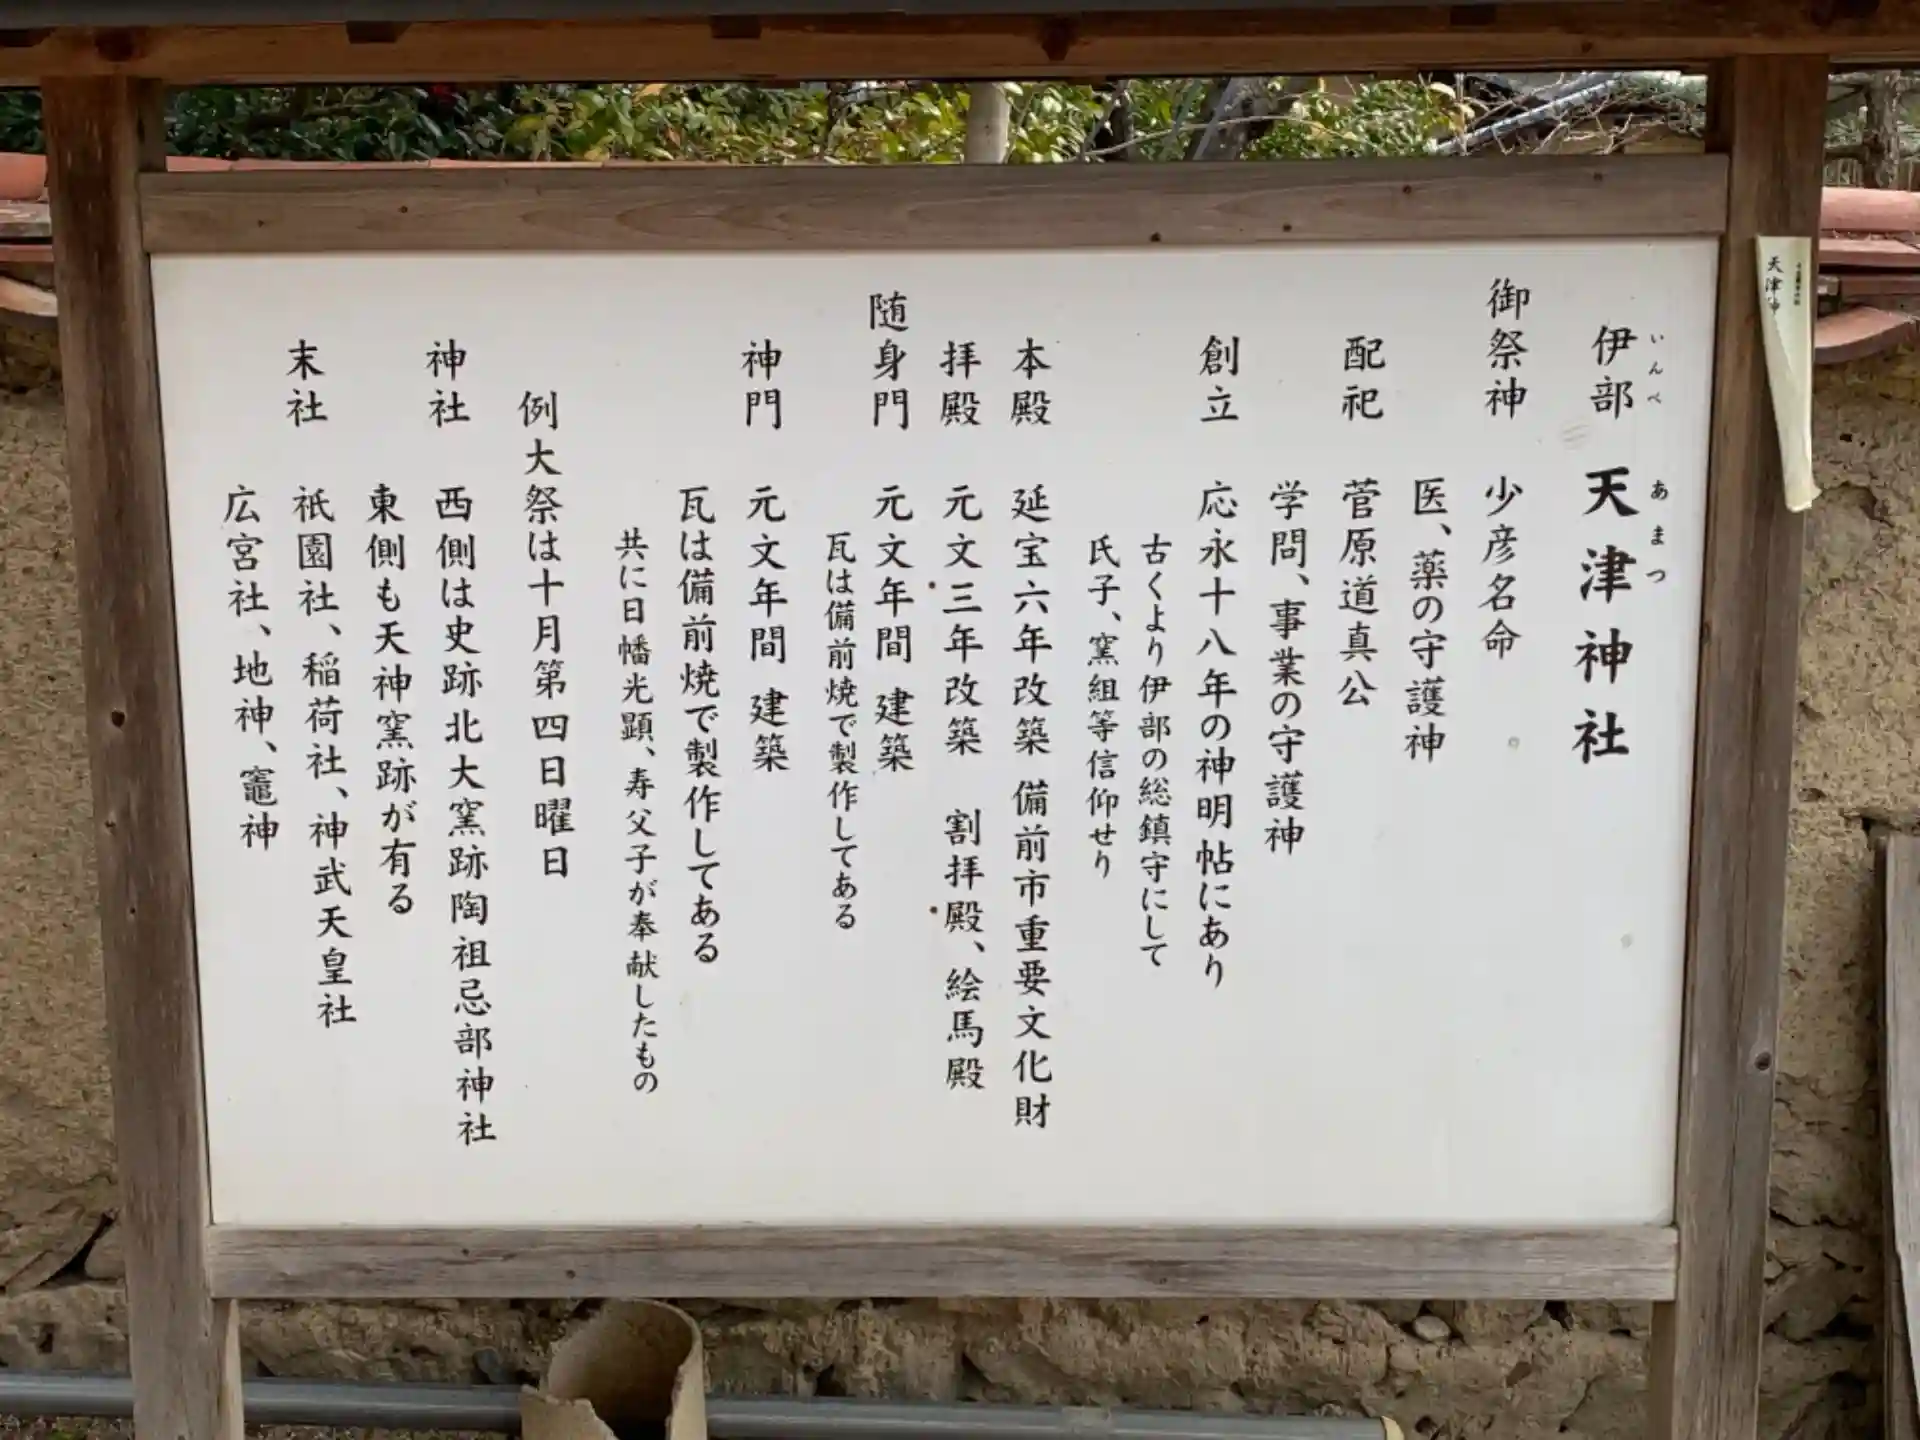 伊部 天津神社
いんべ あまつ
御祭神 少彦名命
医、薬の守護神
配祀 菅原道真公
学問、事業の守護神
創立 応永十八年の神明帖にあり
古くより伊部の総鎮守にして
氏子、窯組等信仰せり
本殿 延宝六年改築 備前市重要文化財
拝殿 元文三年改築 割拝殿、絵馬殿
随身門 元文年間 建築
瓦は備前焼で製作してある
神門 元文年間 建築
瓦は備前焼で製作してある
共に日幡光顕、寿父子が奉献したもの
例大祭は十月第四日曜日
神社 西側は史跡北大窯跡陶祖忌部神社
東側も天神窯跡が有る
末社 祇園社、稲荷社、神武天皇社
広宮社、地神、竈神
天津神